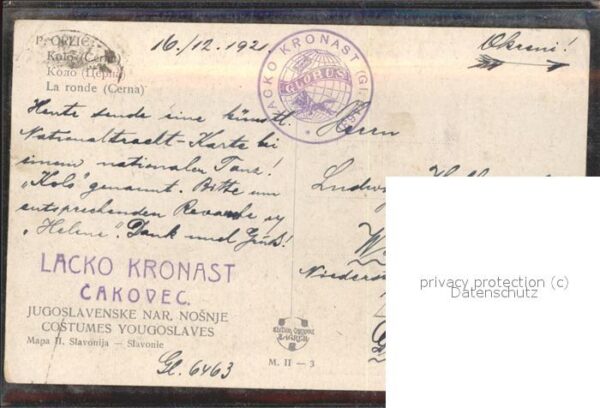 P. ORLIĆ
Kolo (Cerna)
Коло (Церна)
La ronde (Cerna)
16./12. 1921.
LACKO KRONAST (GL.
GLOBUS
Okreni!
Heute sende eine künstl.
Nationaltracht-Karte bei
einem nationalen Tanz!
"Kolo" genannt. Bitte um
entsprechenden Revanche
"Helene". Dank und Gruß!
Herrn
Ludwig
LACKO KRONAST
ČAKOVEC.
JUGOSLAVENSKE NAR. NOŠNJE
COSTUMES YOUGOSLAVES
Mapa II. Slavonija — Slavonie
Gl. 6463
ZAGREB
M. II — 3
privacy protection (c)
Datenschutz